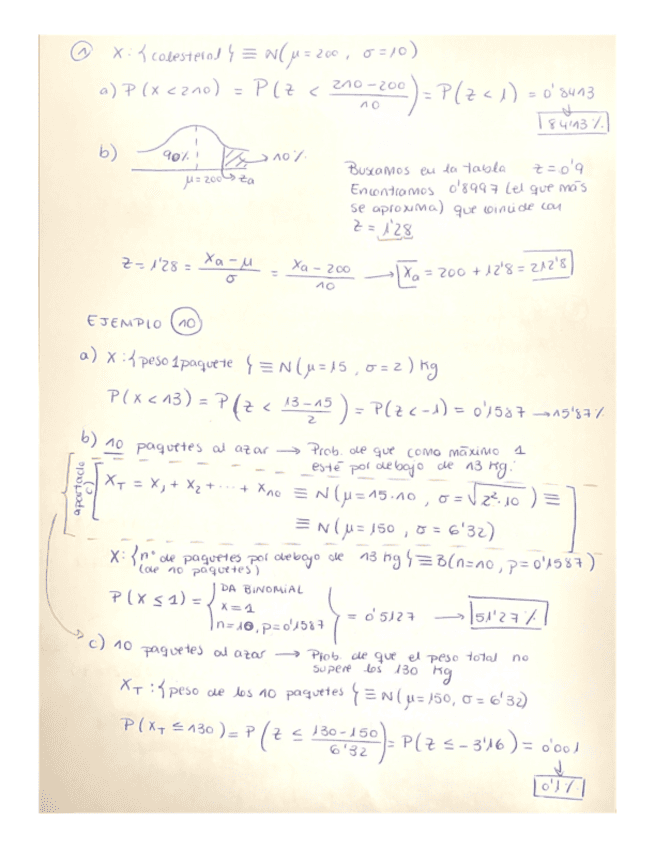 ① X: {colesterol} ≡ N(μ=200, σ=10)
a) P(X<210) = P(Z < (210-200)/10) = P(Z<1) = 0'8413
↓
84'13%
b) 90% → 10%
μ=200 → Za
Buscamos en la tabla Z=0'9
Encontramos 0'8997 (el que más
se aproxima) que coincide con
Z = 1'28
Z = 1'28 = (Xa-μ)/σ = (Xa-200)/10 → Xa = 200 + 12'8 = 212'8
EJEMPLO ⑩
a) X: {peso 1 paquete} ≡ N(μ=15, σ=2) kg
P(X<13) = P(Z < (13-15)/2) = P(Z<-1) = 0'1587 → 15'87%
b) 10 paquetes al azar → Prob. de que como máximo 1
esté por debajo de 13 kg.
apartado c)
XT = X1 + X2 + ... + X10 ≡ N(μ=15·10, σ=√2²·10) ≡
≡ N(μ=150, σ=6'32)
X: {nº de paquetes por debajo de 13 kg} ≡ B(n=10, p=0'1587)
(de 10 paquetes)
P(X≤1) = { DA BINOMIAL
x=1
n=10, p=0'1587 } = 0'5127 → 51'27%
c) 10 paquetes al azar → Prob. de que el peso total no
supere los 130 kg
XT: {peso de los 10 paquetes} ≡ N(μ=150, σ=6'32)
P(XT≤130) = P(Z ≤ (130-150)/6'32) = P(Z ≤ -3'16) = 0'001
↓
0'1%